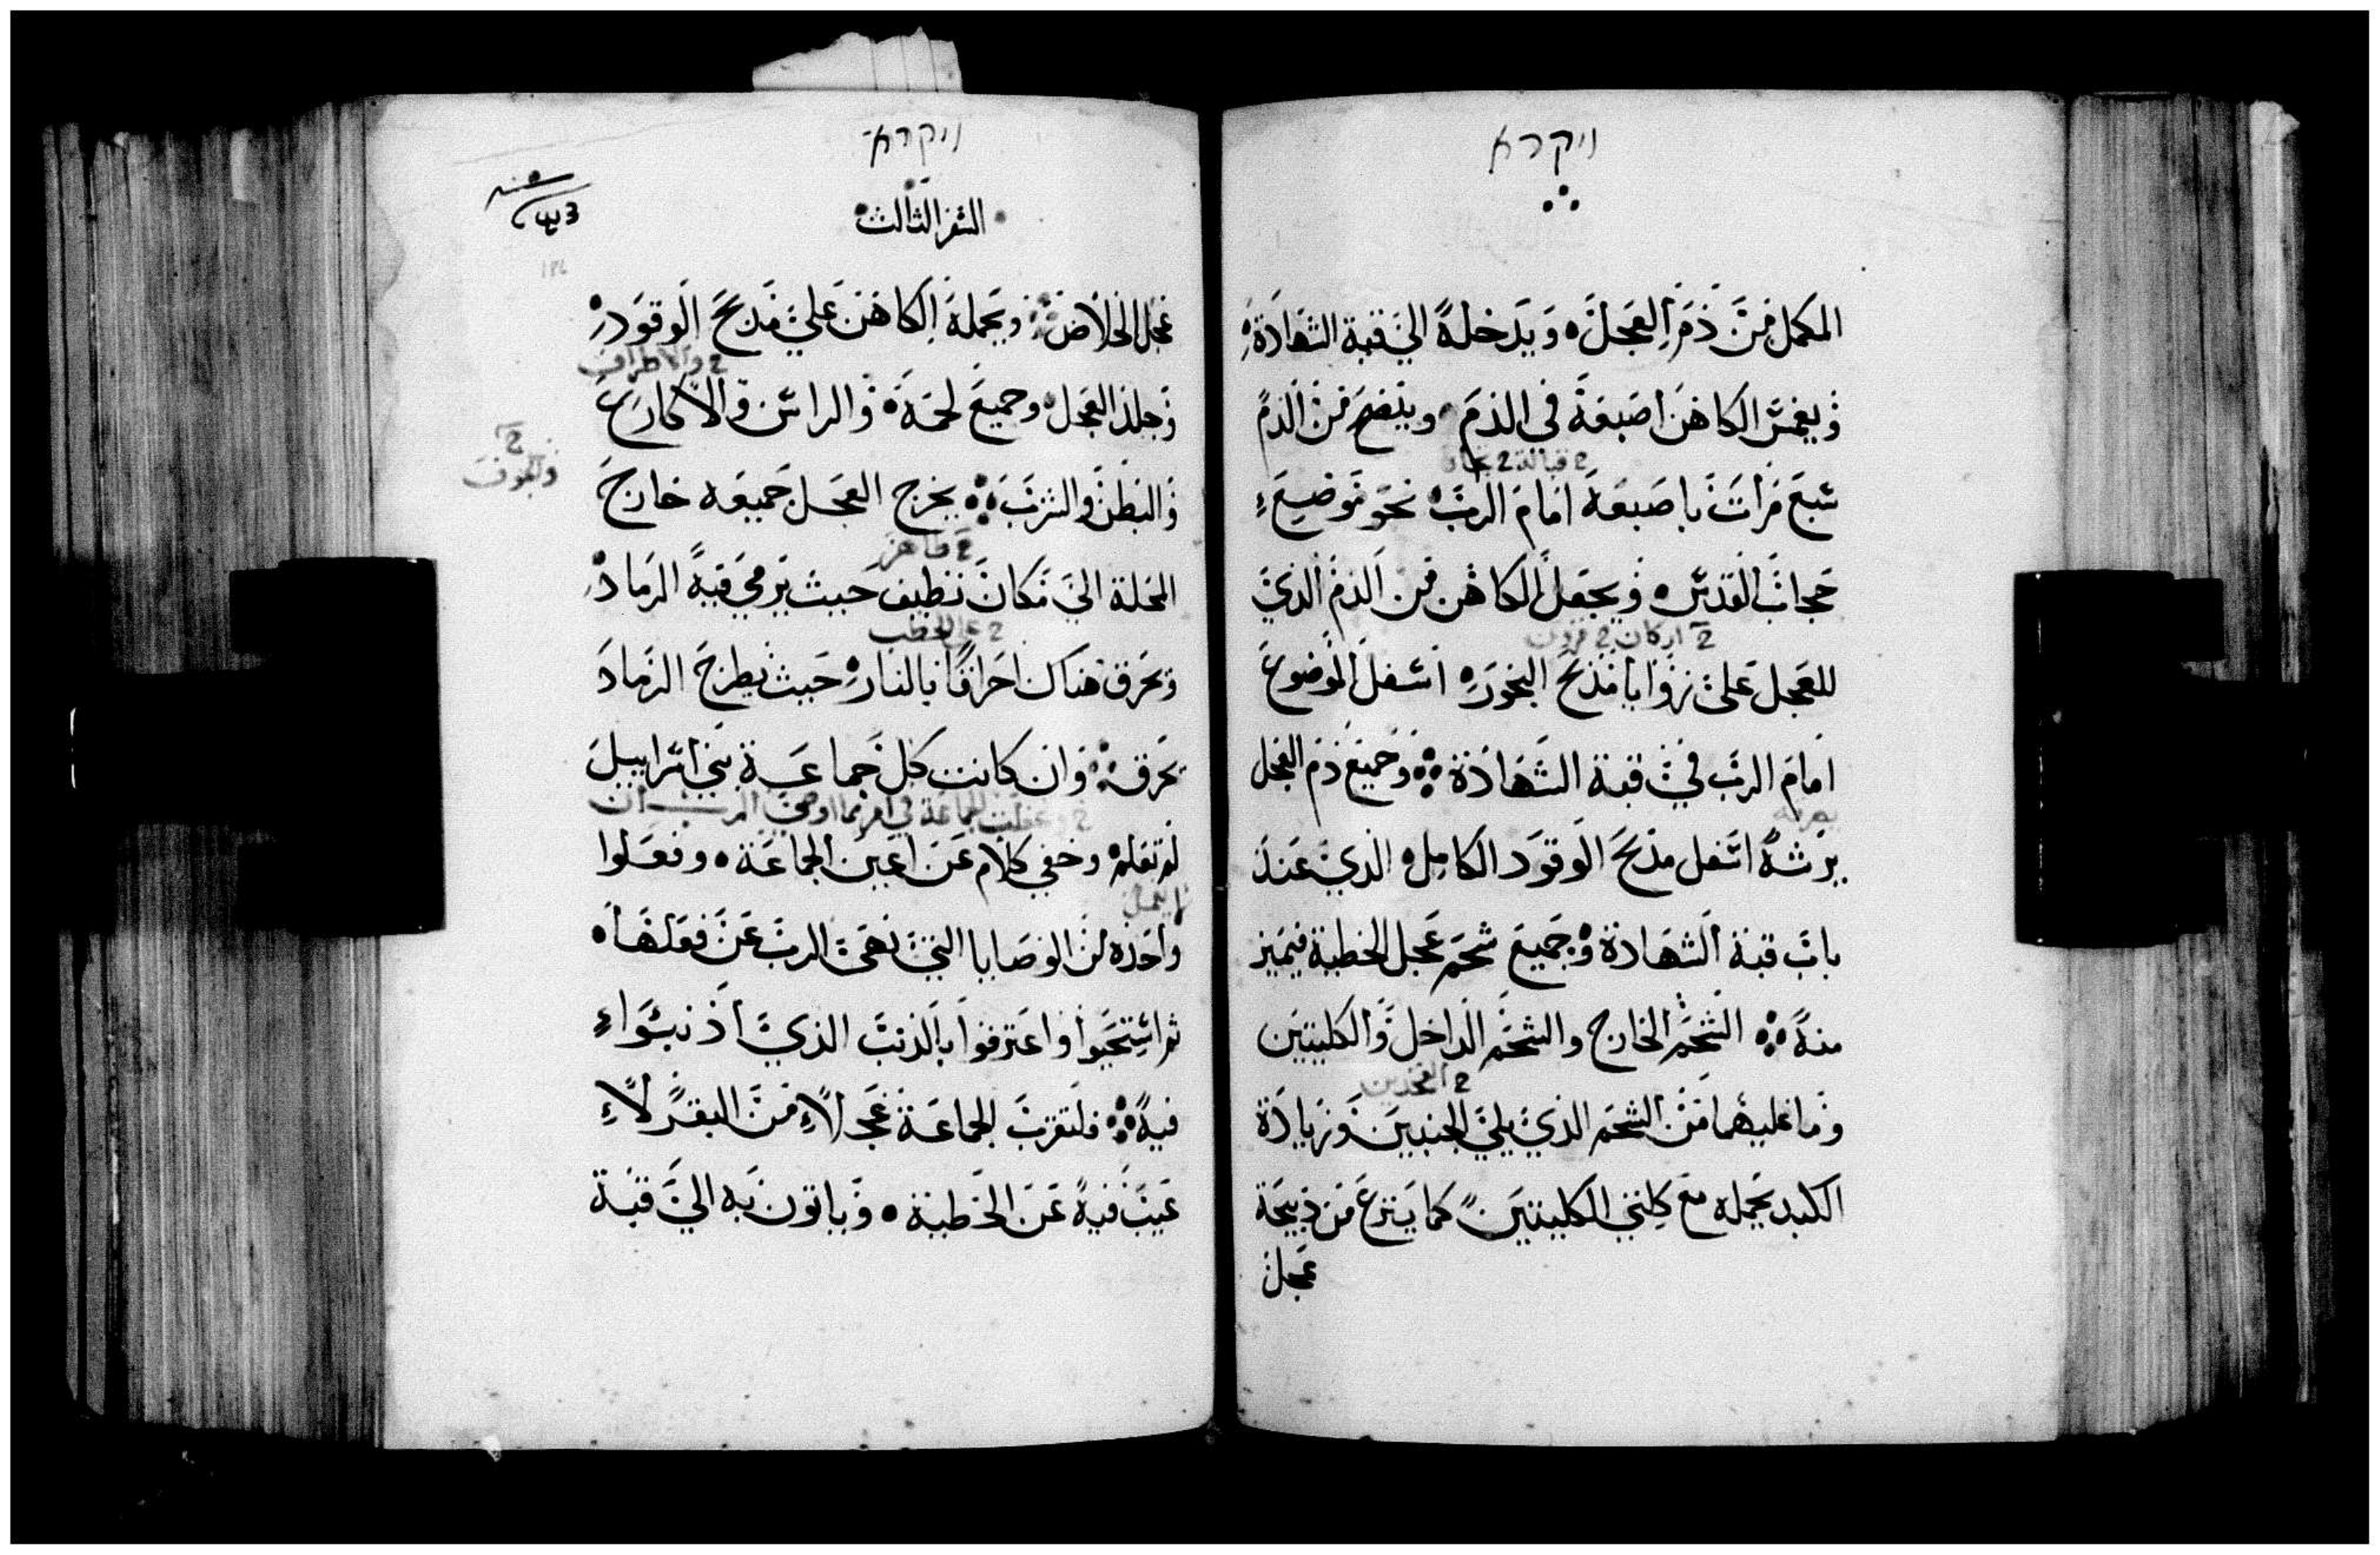 ויקרא
المكمل من دم العجل ويدخله الي قبة الشهادة
ويغمس الكاهن اصبعه في الدم وينضح من الدم
2 قبالة 2
سبع مرات باصبعه امام الرب نحو موضع
حجاب القدس ويجعل الكاهن من الدم الذي
2 اركان 2 قرون
للعجل على زوايا مذبح البخور اسفل الموضوع
امام الرب في قبة الشهادة وجميع دم العجل
يرشه اسفل مذبح الوقود الكامل الذي عند
باب قبة الشهادة وجميع شحم عجل الخطية فيميز
منه الشحم الخارج والشحم الداخل والكليتين
2 الفخذين
وما عليهما من الشحم الذي يلي الجنبين وزيادة
الكبد يحمله مع كلتي الكليتين كما ينزع من ذبيحة
عجل
ויקרא
السفر الثالث
عجل الخلاص ويحمله الكاهن علي مذبح الوقود
2 والاطراف
وجلد العجل وجميع لحمه والراس والاكارع
2 والجوف
والبطن والثرب يخرج العجل جميعه خارج
2 طاهر
المحلة الي مكان نظيف حيث يرمي فيه الرماد
2 علي الحطب
ويحرق هناك احراقا بالنار حيث يطرح الرماد
يحرق وان كانت كل جماعة بني اسراييل
لم تعلم وخفي كلام عن اعين الجماعة وفعلوا
واحده من الوصايا التي نهى الرب عن فعلها
ثم استحيوا واعترفوا بالذنب الذي اذنبوا
فيه فلتقرب الجماعة عجلا من البقر لا
عيب فيه عن الخطية وياتون به الي قبة